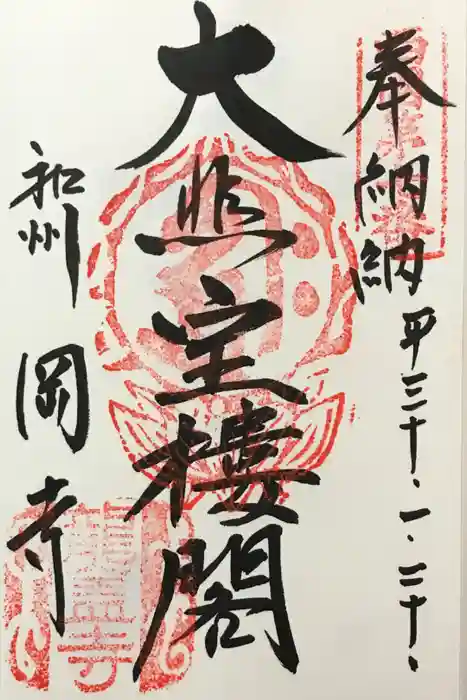 奉納納 平三十、一、二十、
大悲宝樓閣
和州 岡寺
龍蓋寺